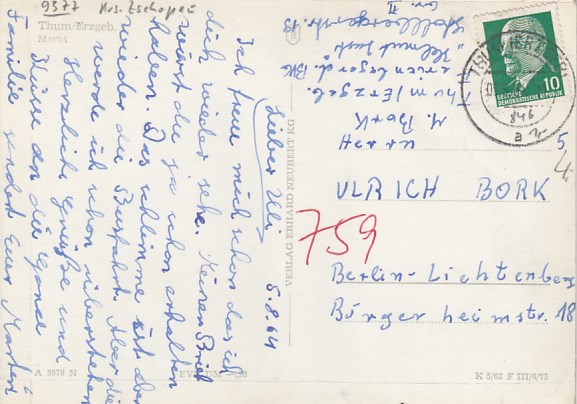 9377 Krs. Zschopau
Thum/Erzgeb.
Markt
5.8.64
Lieber Uli
Ich freue mich schon das ich
dich wieder sehe. Meinen Brief
wirst du ja schon erhalten
haben. Das schlimme ist aber
wieder die Busfahrt. Aber die
werde ich schon überstehen
Herzliche Grüße und
Küsse an die Ganze
Familie sendet Euer Martin
A 3979 N
VERLAG ERHARD NEUBERT KG
K 5/63 F III/6/73
M. Bork
Thum/Erzgeb.
Ferienlager d. BMK
"Helmut Just"
Stollbergerstr. 13
10
DEUTSCHE
DEMOKRATISCHE REPUBLIK
THUM (ERZGEB)
846
a
5/4
Herrn
ULRICH BORK
759
Berlin-Lichtenberg
Bürgerheimstr. 18